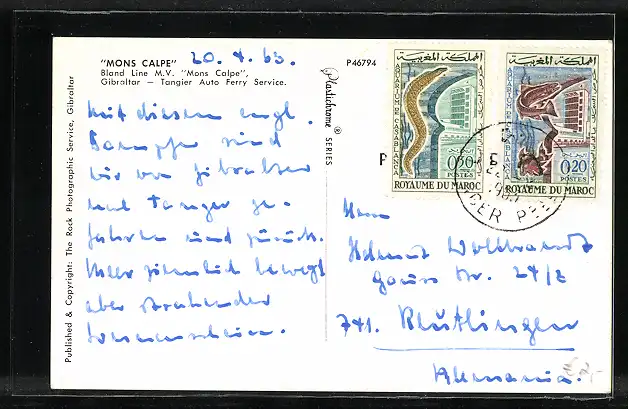 "MONS CALPE" 20. 4. 65.
Bland Line M.V. "Mons Calpe",
Gibraltar — Tangier Auto Ferry Service.
P46794
Published & Copyright: The Rock Photographic Service, Gibraltar
Plastichrome ® SERIES
Mit diesem engl.
Dampfer sind
wir von Gibraltar
nach Tanger ge-
fahren und zurück.
Meer ziemlich bewegt
aber strahlender
Sonnenschein.
المملكة المغربية
AQUARIUM DE CASABLANCA
0,50
POSTES
ROYAUME DU MAROC
المملكة المغربية
AQUARIUM DE CASABLANCA
0,20
POSTES
ROYAUME DU MAROC
Herrn
Helmut
741. Reutlingen
Alemania.